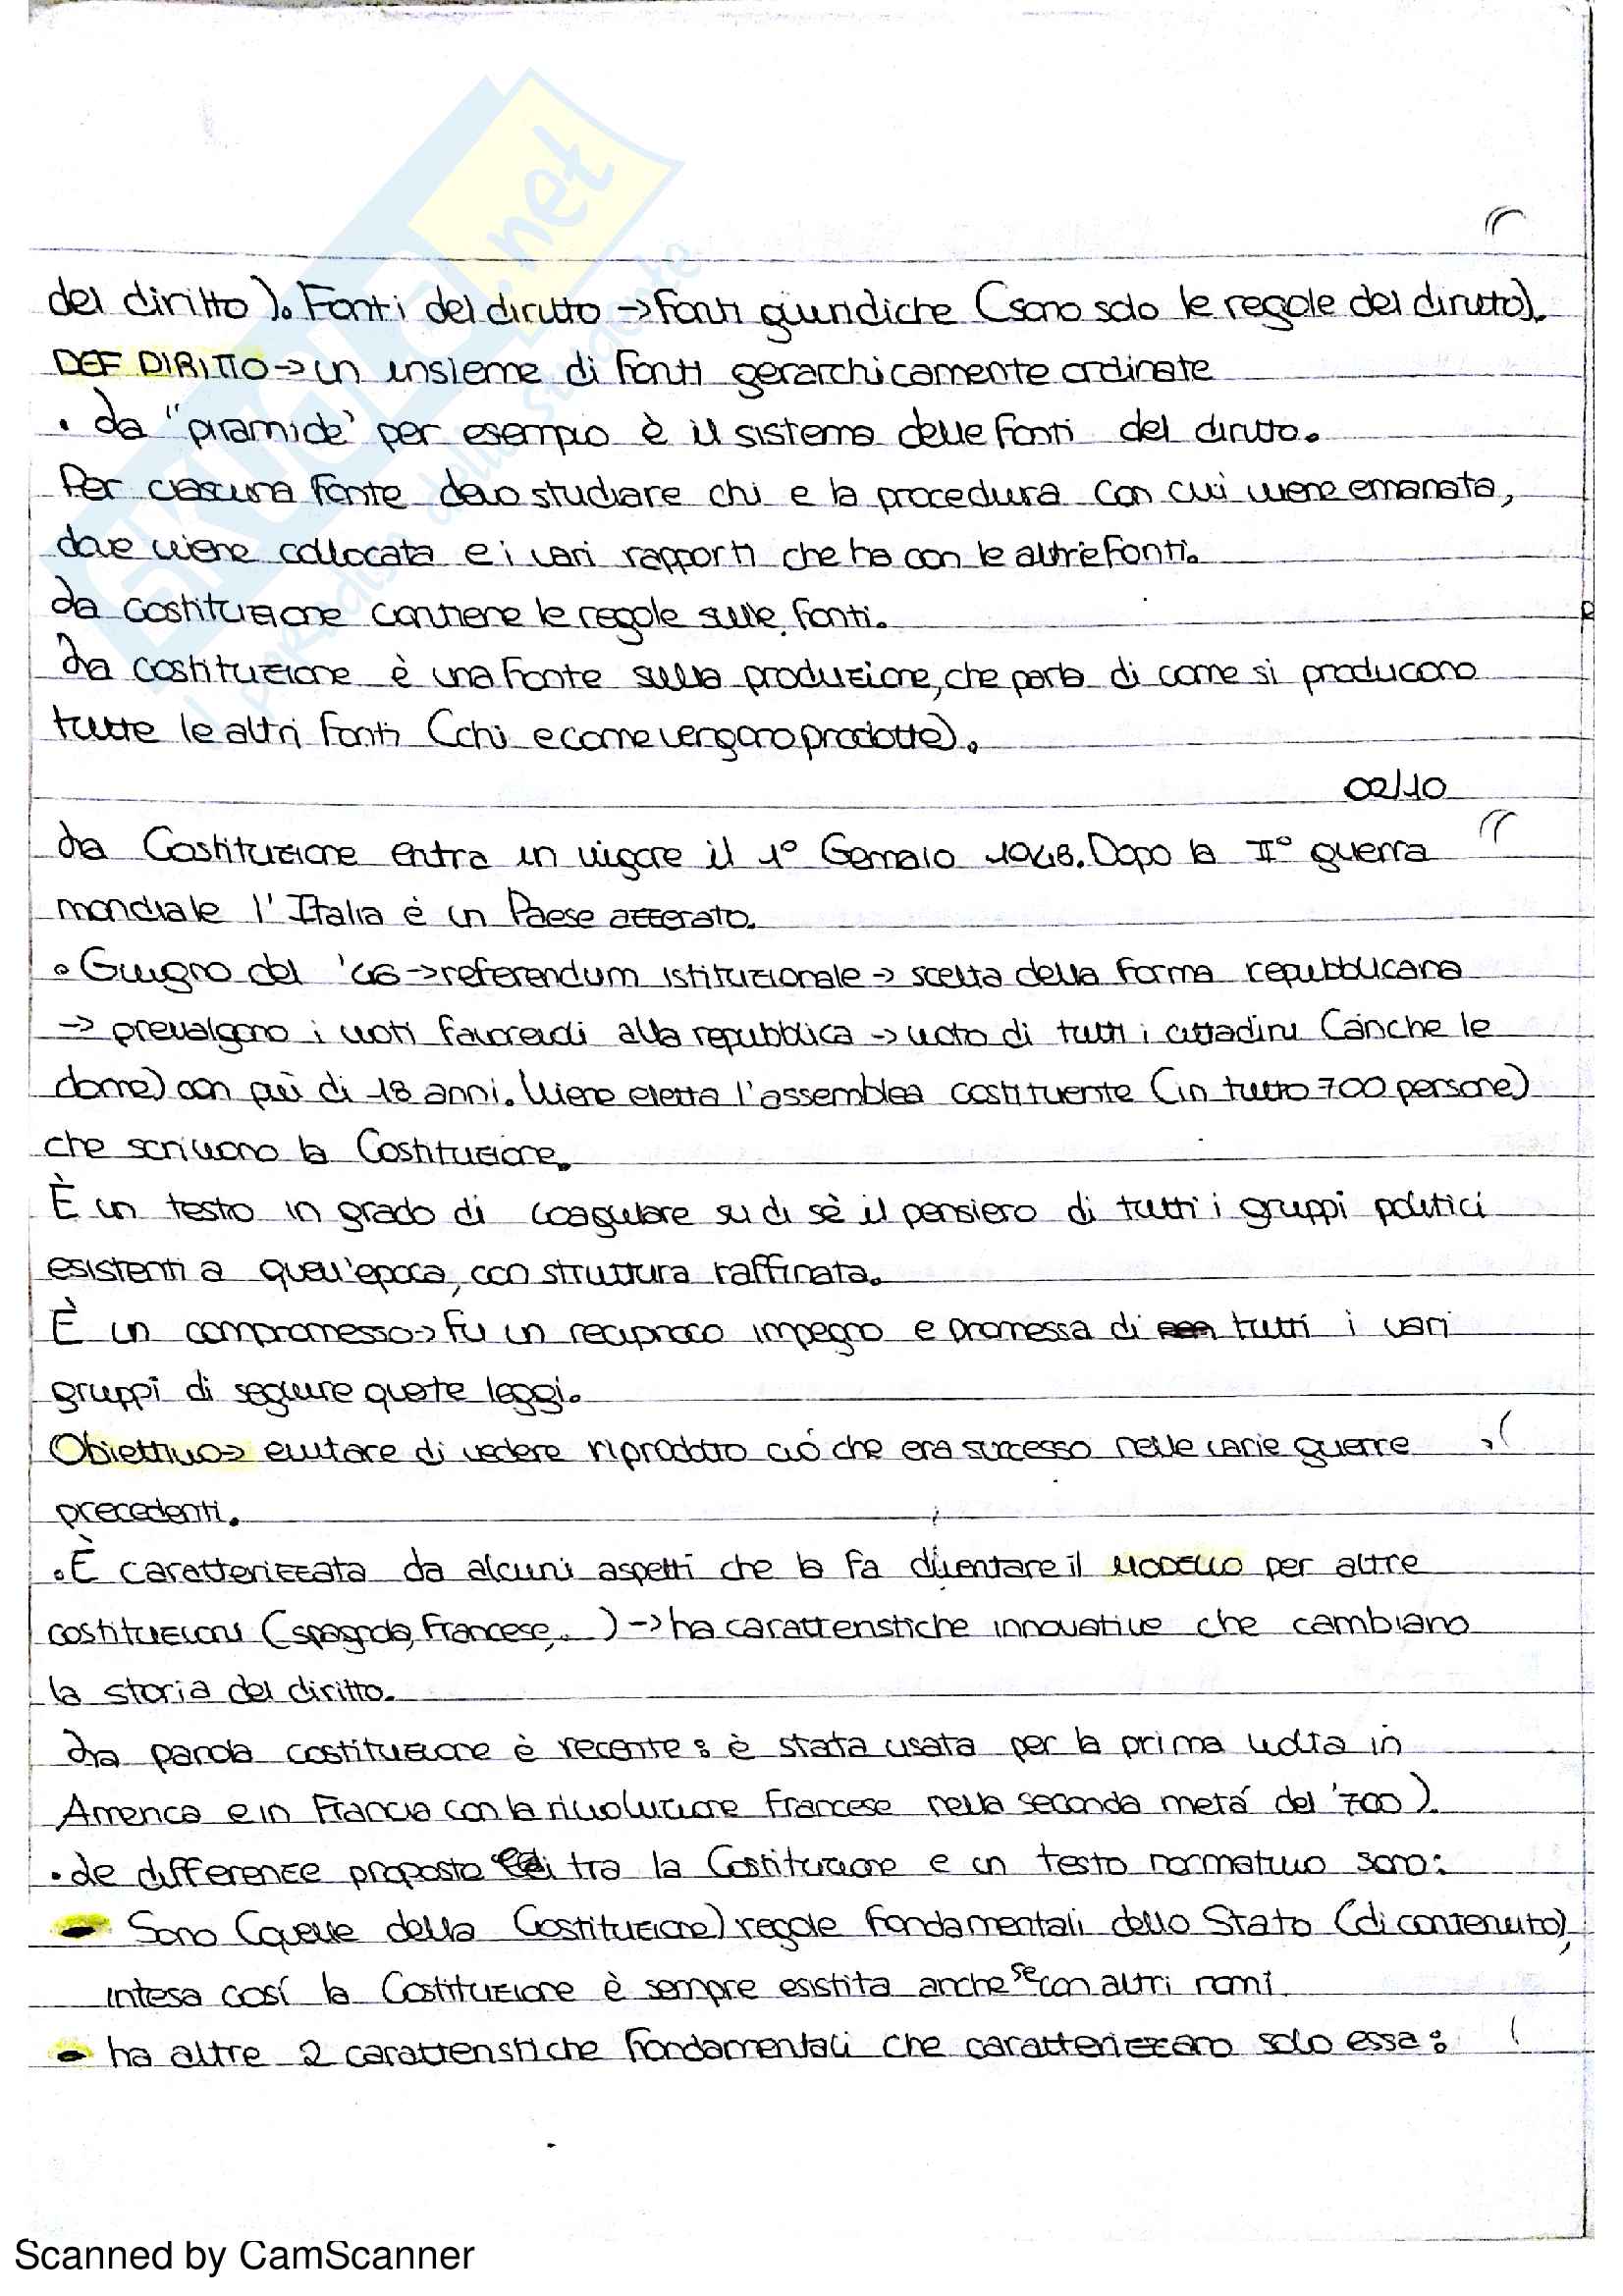 SKUOLA.net
il paradiso dello studente
del diritto). Fonti del diritto → Fonti giuridiche (sono solo le regole del diritto).
DEF DIRITTO → un insieme di Fonti gerarchicamente ordinate
• La "piramide" per esempio è il sistema delle fonti del diritto.
Per ciascuna Fonte devo studiare chi e la procedura con cui viene emanata,
dove viene collocata e i vari rapporti che ha con le altre Fonti.
La costituzione contiene le regole sulle fonti.
La costituzione è una Fonte sulla produzione, che parla di come si producono
tutte le altri Fonti (chi e come vengono prodotte).
02/10
La Costituzione entra in vigore il 1° Gennaio 1948. Dopo la II° guerra
mondiale l'Italia è un Paese azzerato.
• Giugno del '46 → referendum istituzionale → scelta della Forma repubblicana
→ prevalgono i voti favorevoli alla repubblica → voto di tutti i cittadini (anche le
donne) con più di 18 anni. Viene eletta l'assemblea costituente (in tutto 700 persone)
che scrivono la Costituzione.
È un testo in grado di coagulare su di sè il pensiero di tutti i gruppi politici
esistenti a quell'epoca, con struttura raffinata.
È un compromesso → Fu un reciproco impegno e promessa di tutti i vari
gruppi di seguire quete leggi.
Obiettivo → evitare di vedere riprodotto ciò che era successo nelle varie guerre
precedenti.
• È caratterizzata da alcuni aspetti che la fa diventare il MODELLO per altre
costituzioni (spagnola, Francese, ..) → ha caratteristiche innovative che cambiano
la storia del diritto.
La parola costituzione è recente: è stata usata per la prima volta in
America e in Francia con la rivoluzione Francese nella seconda metá del '700).
• Le differenze proposte tra la Costituzione e un testo normativo sono:
- Sono (quelle della Costituzione) regole Fondamentali dello Stato (di contenuto),
intesa cosí la Costituzione è sempre esistita anche se con altri nomi.
- ha altre 2 caratteristiche Fondamentali che caratterizzano solo essa:
Scanned by CamScanner